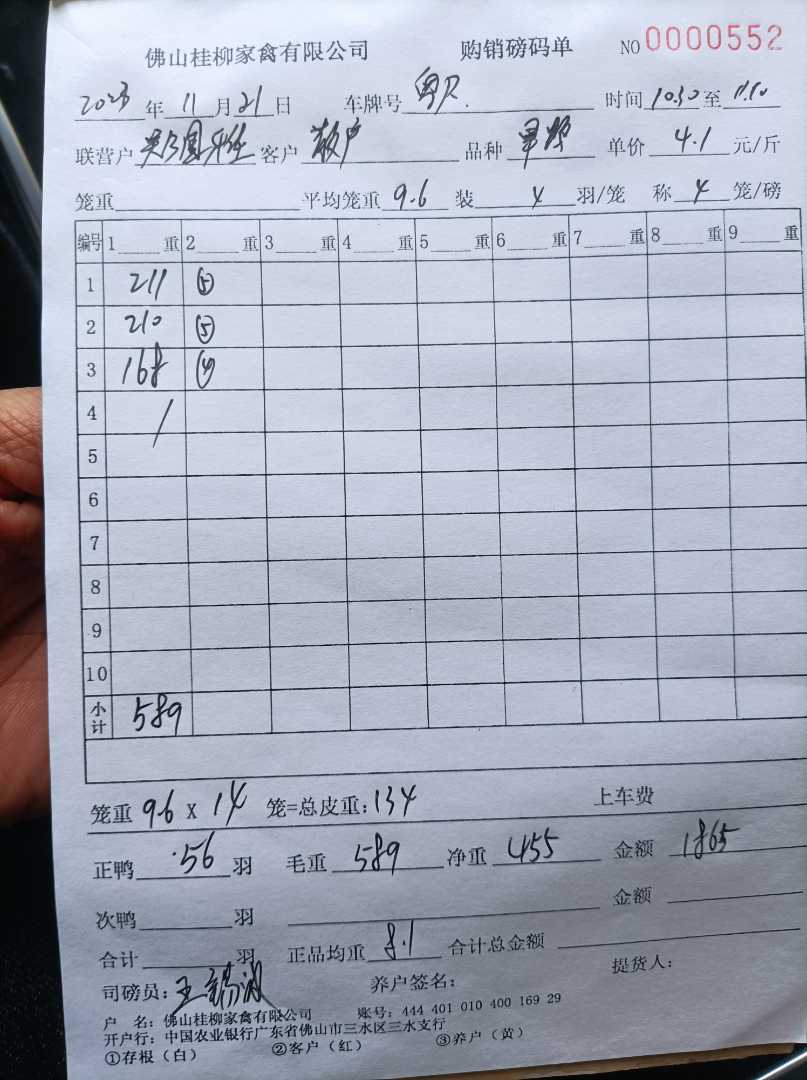 佛山桂柳家禽有限公司 购销磅码单 NO 0000552
2023 年 11 月 21 日 车牌号 粤 时间 10.30 至 11.10
联营户 客户 散户 品种 单价 4.1 元/斤
笼重 平均笼重 9.6 装 4 羽/笼 称 4 笼/磅
编号 1 重 2 重 3 重 4 重 5 重 6 重 7 重 8 重 9 重
1 211 ⑤
2 210 ⑤
3 168 ④
4 /
5
6
7
8
9
10
小计 589
笼重 9.6 x 14 笼=总皮重:134 上车费
正鸭 56 羽 毛重 589 净重 455 金额 1865
次鸭 羽 金额
合计 羽 正品均重 8.1 合计总金额
司磅员: 王锡 养户签名: 提货人:
户 名: 佛山桂柳家禽有限公司 账号: 444 401 010 400 169 29
开户行: 中国农业银行广东省佛山市三水区三水支行
①存根(白) ②客户(红) ③养户(黄)